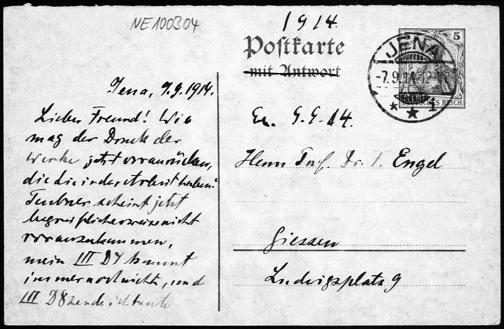 NE100304
1914
Postkarte
mit Antwort
5
JENA
-7.9.14.12-1
S REICH
Jena, 7.9.1914.
Lieber Freund! Wie
mag der Druck der
Werke jetzt voranrücken,
die Sie in der Arbeit haben?
Teubner scheint jetzt
begreiflicherweise nicht
voranzukommen,
mein III D4 kommt
immer noch nicht, und
III D8
Em. 9.9.14.
Herrn Prof. Dr. F. Engel
Giessen
Ludwigsplatz 9